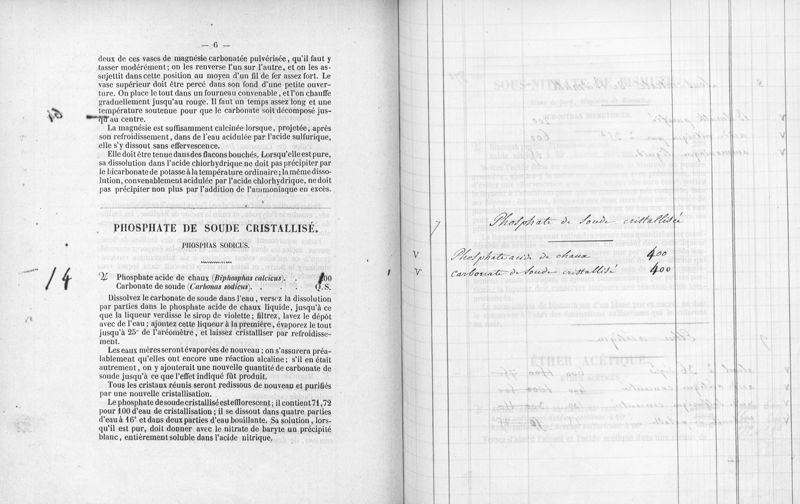 — 6 —
deux de ces vases de magnésie carbonatée pulvérisée, qu'il faut y
tasser modérément; on les renverse l'un sur l'autre, et on les as-
sujettit dans cette position au moyen d'un fil de fer assez fort. Le
vase supérieur doit être percé dans son fond d'une petite ouver-
ture. On place le tout dans un fourneau convenable, et l'on chauffe
graduellement jusqu'au rouge. Il faut un temps assez long et une
température soutenue pour que le carbonate soit décomposé jus-
qu'au centre.
La magnésie est suffisamment calcinée lorsque, projetée, après
son refroidissement, dans de l'eau acidulée par l'acide sulfurique,
elle s'y dissout sans effervescence.
Elle doit être tenue dans des flacons bouchés. Lorsqu'elle est pure,
sa dissolution dans l'acide chlorhydrique ne doit pas précipiter par
le bicarbonate de potasse à la température ordinaire; la même disso-
lution, convenablement acidulée par l'acide chlorhydrique, ne doit
pas précipiter non plus par l'addition de l'ammoniaque en excès.
PHOSPHATE DE SOUDE CRISTALLISÉ.
PHOSPHAS SODICUS.
14
Phosphate acide de chaux (Biphosphas calcicus). . 100
Carbonate de soude (Carbonas sodicus). . . . . Q.S.
Dissolvez le carbonate de soude dans l'eau, versez la dissolution
par parties dans le phosphate acide de chaux liquide, jusqu'à ce
que la liqueur verdisse le sirop de violette; filtrez, lavez le dépôt
avec de l'eau; ajoutez cette liqueur à la première, évaporez le tout
jusqu'à 25° de l'aréomètre, et laissez cristalliser par refroidisse-
ment.
Les eaux mères seront évaporées de nouveau; on s'assurera préa-
lablement qu'elles ont encore une réaction alcaline; s'il en était
autrement, on y ajouterait une nouvelle quantité de carbonate de
soude jusqu'à ce que l'effet indiqué fût produit.
Tous les cristaux réunis seront redissous de nouveau et purifiés
par une nouvelle cristallisation.
Le phosphate de soude cristallisé est efflorescent; il contient 71,72
pour 100 d'eau de cristallisation; il se dissout dans quatre parties
d'eau à 16° et dans deux parties d'eau bouillante. Sa solution, lors-
qu'il est pur, doit donner avec le nitrate de baryte un précipité
blanc, entièrement soluble dans l'acide nitrique.
7 Phosphate de soude cristallisé
v Phosphate acide de chaux 400
v Carbonate de soude cristallisé 400